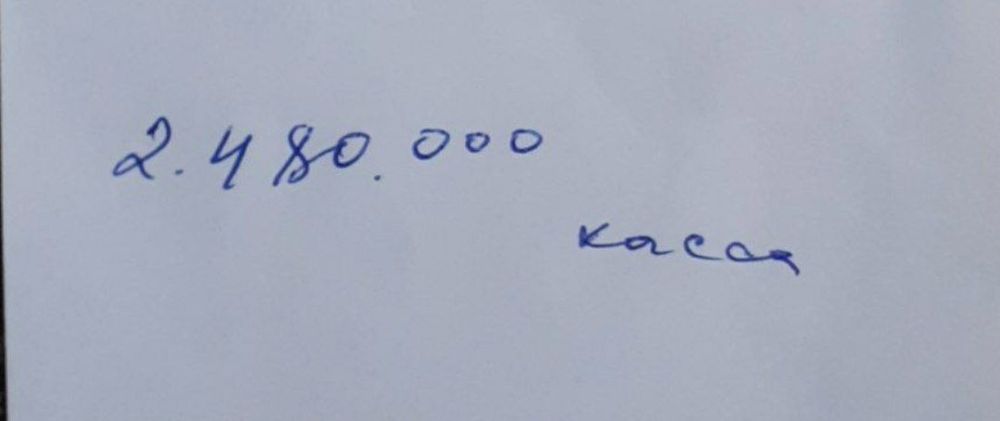 2.480.000
касса